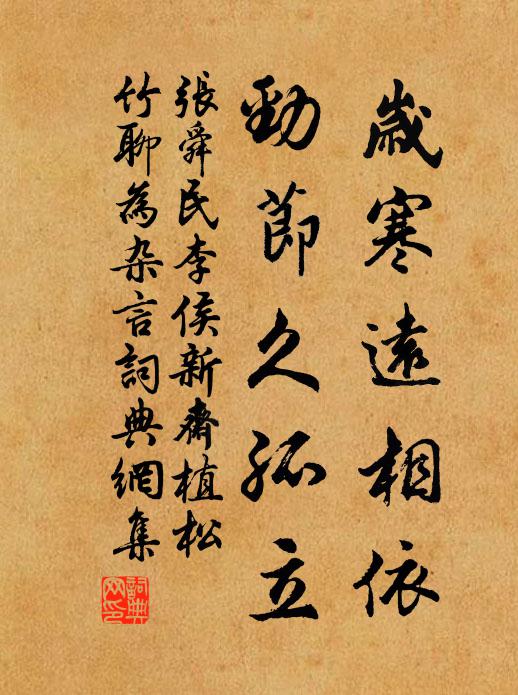 歲寒遠相依
勁節久孤立
張舜民李侯新齋植松
竹聊為杂言詞典網集
詞典
网印